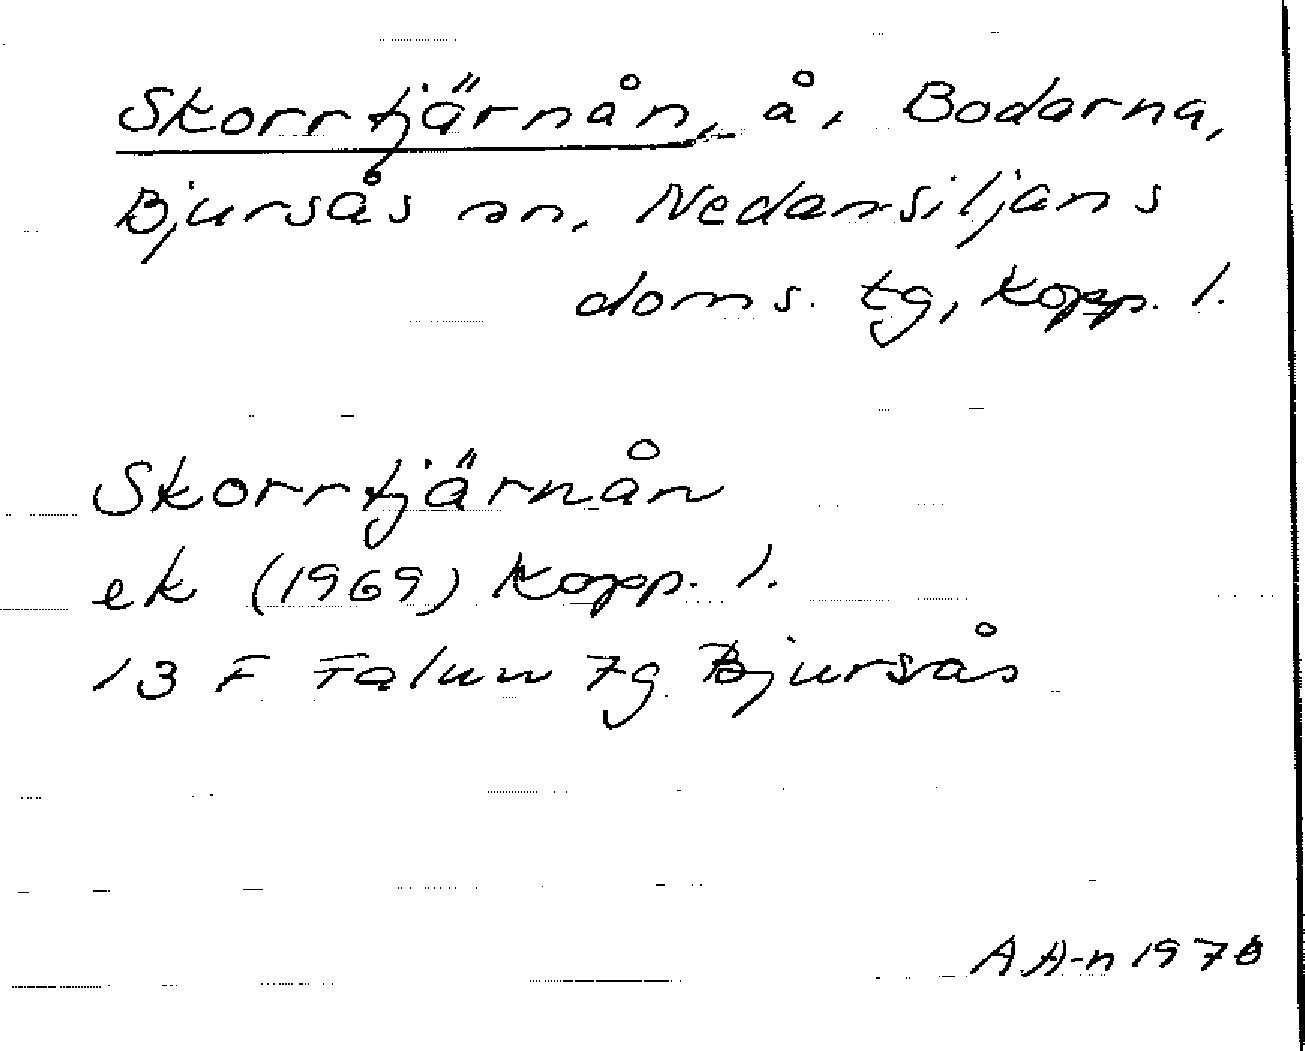 Skorrtjärnån, å, Bodarna,
Bjursås sn, Nedansiljans
doms. tg, Kopp. l.
Skorrtjärnån
ek (1969) Kopp. l.
13 F Falun 7g Bjursås
AA-n 1978